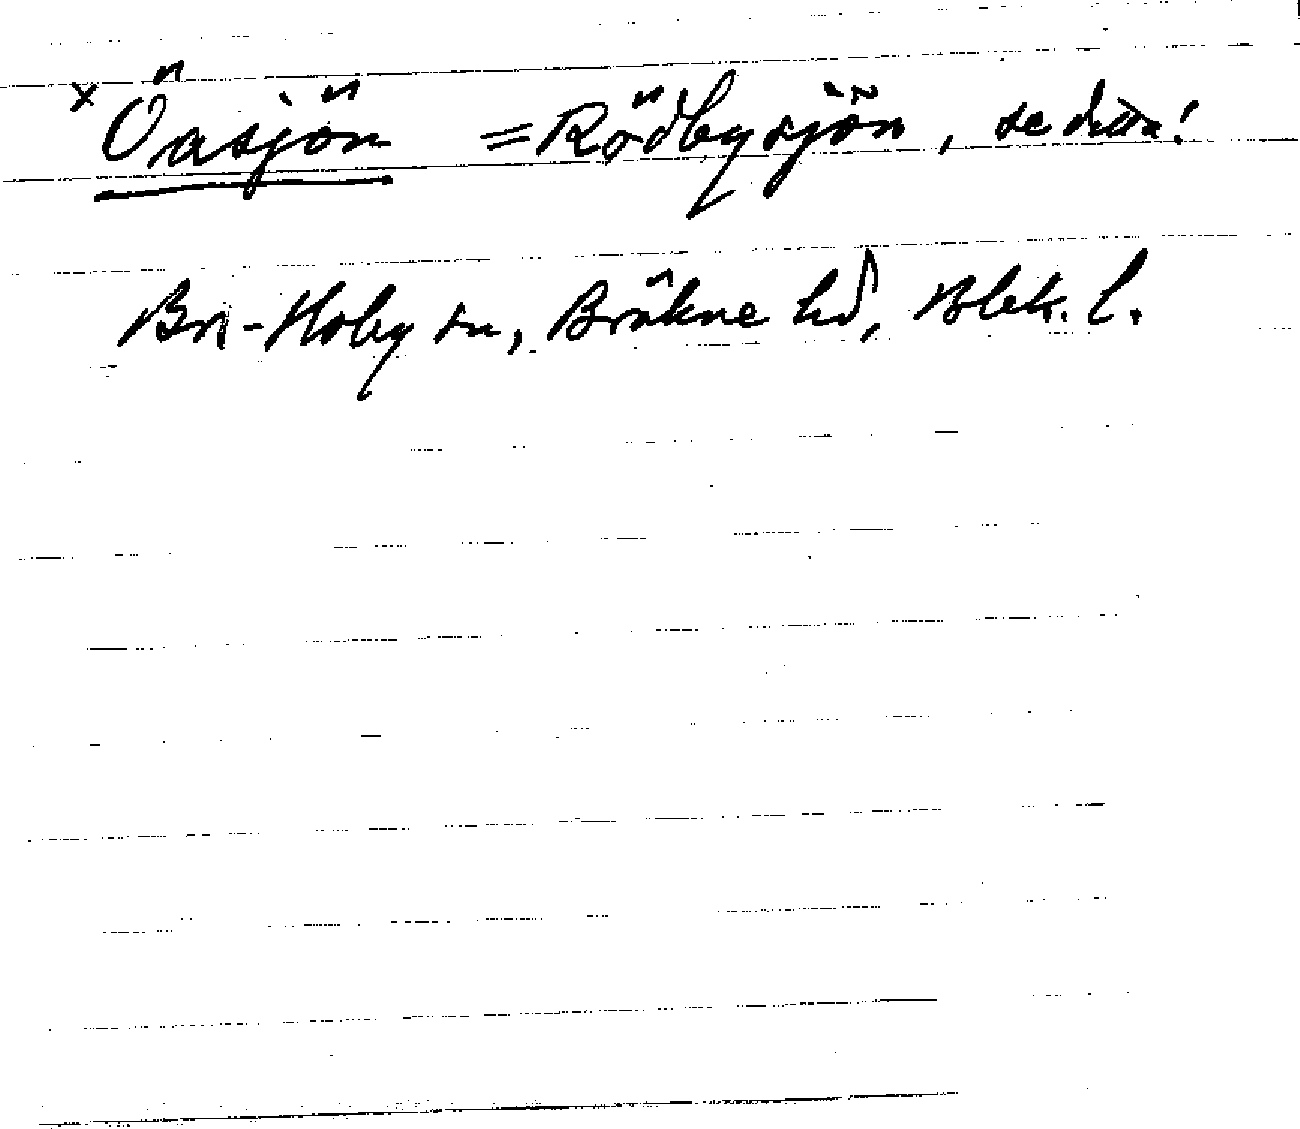 × Öasjön = Rödbysjön, se detta!
Br.-Hoby sn, Bräkne hd, Blek. l.